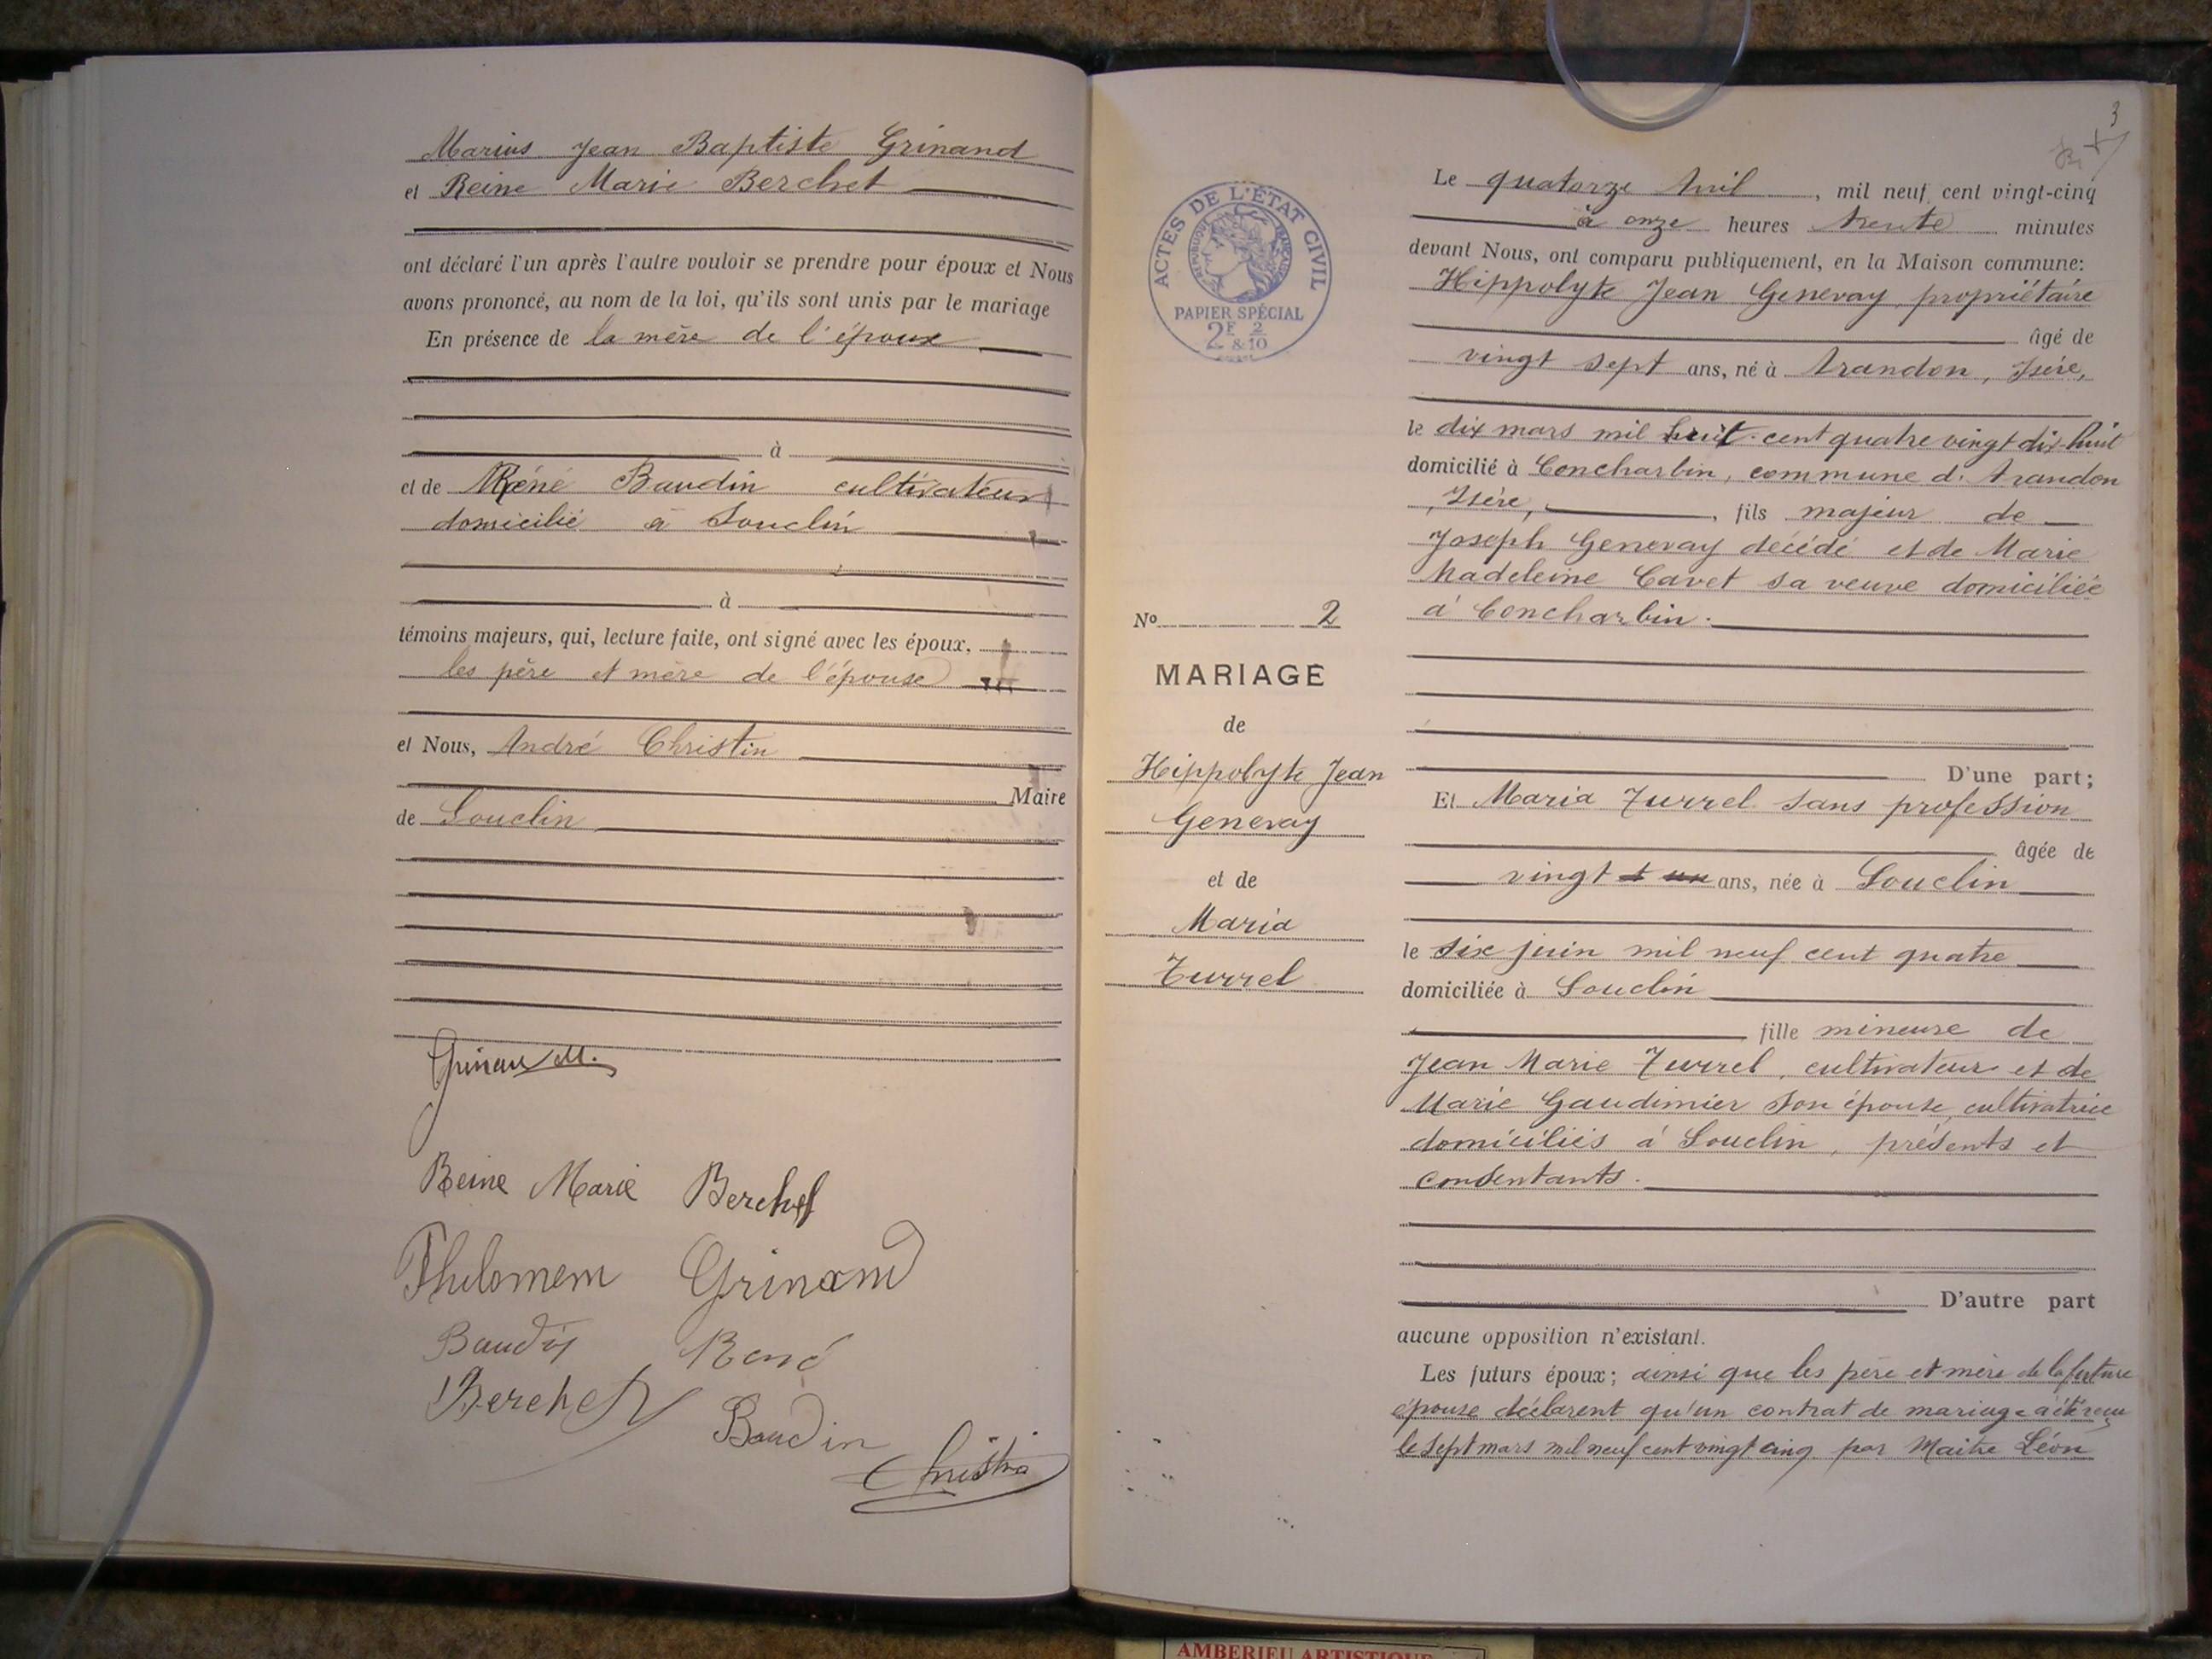 Marius Jean Baptiste Grinand
et Reine Marie Berchet
ont déclaré l'un après l'autre vouloir se prendre pour époux et Nous
avons prononcé, au nom de la loi, qu'ils sont unis par le mariage
En présence de la mère de l'époux
à
et de Réné Baudin cultivateur
domicilié à Souclin
à
témoins majeurs, qui, lecture faite, ont signé avec les époux,
les père et mère de l'épouse
et Nous, André Christin
Maire
de Souclin
Grinand M.
Reine Marie Berchet
Grinand
Baudin René
Berchet
Baudin
Christin
3
ACTES DE L'ÉTAT CIVIL
RÉPUBLIQUE FRANÇAISE
PAPIER SPÉCIAL
2F 2
&10
No 2
MARIAGE
de
Hippolyte Jean
Genevay
et de
Maria
Turrel
Le quatorze Avril, mil neuf cent vingt-cinq
à onze heures trente minutes
devant Nous, ont comparu publiquement, en la Maison commune:
Hippolyte Jean Genevay, propriétaire
âgé de
vingt sept ans, né à Arandon, Isère,
le dix mars mil huit cent quatre vingt dix-huit
domicilié à Concharbin, commune d'Arandon
Isère, fils majeur de
Joseph Genevay décédé et de Marie
Madeleine Cavet sa veuve domiciliée
à Concharbin.
D'une part;
Et Maria Turrel sans profession
âgée de
vingt et un ans, née à Souclin
le six juin mil neuf cent quatre
domiciliée à Souclin
fille mineure de
Jean Marie Turrel, cultivateur et de
Marie Gaudimier son épouse, cultivatrice
domiciliés à Souclin, présents et
consentants.
D'autre part
aucune opposition n'existant.
Les futurs époux; ainsi que les père et mère de la future
épouse déclarent qu'un contrat de mariage a été reçu
le sept mars mil neuf cent vingt cinq par Maitre Léon
AMBERIEU ARTISTIQUE